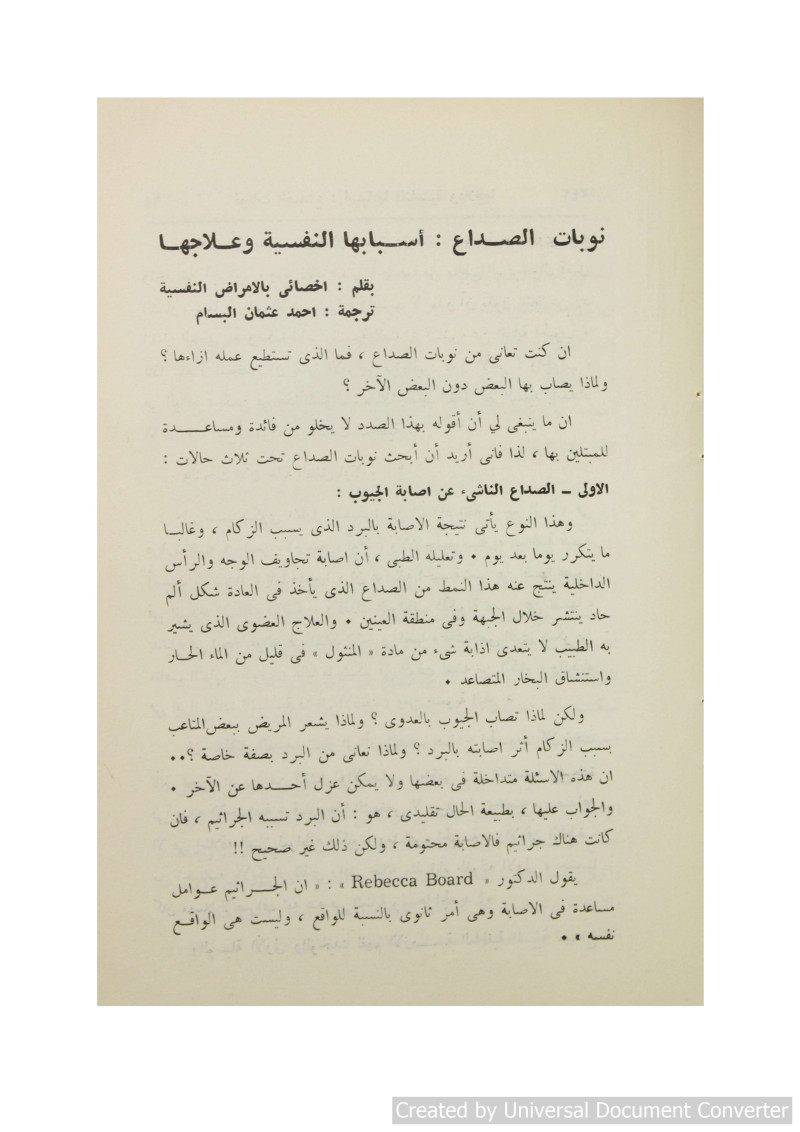 نوبات الصداع : أسبابها النفسية وعلاجها
بقلم : اخصائى بالامراض النفسية
ترجمة : احمد عثمان البسام
ان كنت تعانى من نوبات الصداع ، فما الذى تستطيع عمله ازاءها ؟
ولماذا يصاب بها البعض دون البعض الآخر ؟
ان ما ينبغى لي أن أقوله بهذا الصدد لا يخلو من فائدة ومساعدة
للمبتلين بها ، لذا فانى أريد أن أبحث نوبات الصداع تحت ثلاث حالات :
الاولى – الصداع الناشىء عن اصابة الجيوب :
وهذا النوع يأتى نتيجة الاصابة بالبرد الذى يسبب الزكام ، وغالبا
ما يتكرر يوما بعد يوم • وتعليله الطبى ، أن اصابة تجاويف الوجه والرأس
الداخلية ينتج عنه هذا النمط من الصداع الذى يأخذ فى العادة شكل ألم
حاد ينتشر خلال الجبهة وفى منطقة العينين • والعلاج العضوى الذى يشير
به الطبيب لا يتعدى اذابة شىء من مادة « المنثول » فى قليل من الماء الحار
واستنشاق البخار المتصاعد •
ولكن لماذا تصاب الجيوب بالعدوى ؟ ولماذا يشعر المريض ببعض المتاعب
بسبب الزكام أثر اصابته بالبرد ؟ ولماذا نعانى من البرد بصفة خاصة ؟••
ان هذه الاسئلة متداخلة فى بعضها ولا يمكن عزل أحدها عن الآخر •
والجواب عليها ، بطبيعة الحال تقليدى ، هو : أن البرد تسببه الجراثيم ، فان
كانت هناك جراثيم فالاصابة محتومة ، ولكن ذلك غير صحيح !!
يقول الدكتور « Rebecca Board » : « ان الجراثيم عوامل
مساعدة فى الاصابة وهى أمر ثانوى بالنسبة للواقع ، وليست هى الواقع
نفسه » •
Created by Universal Document Converter